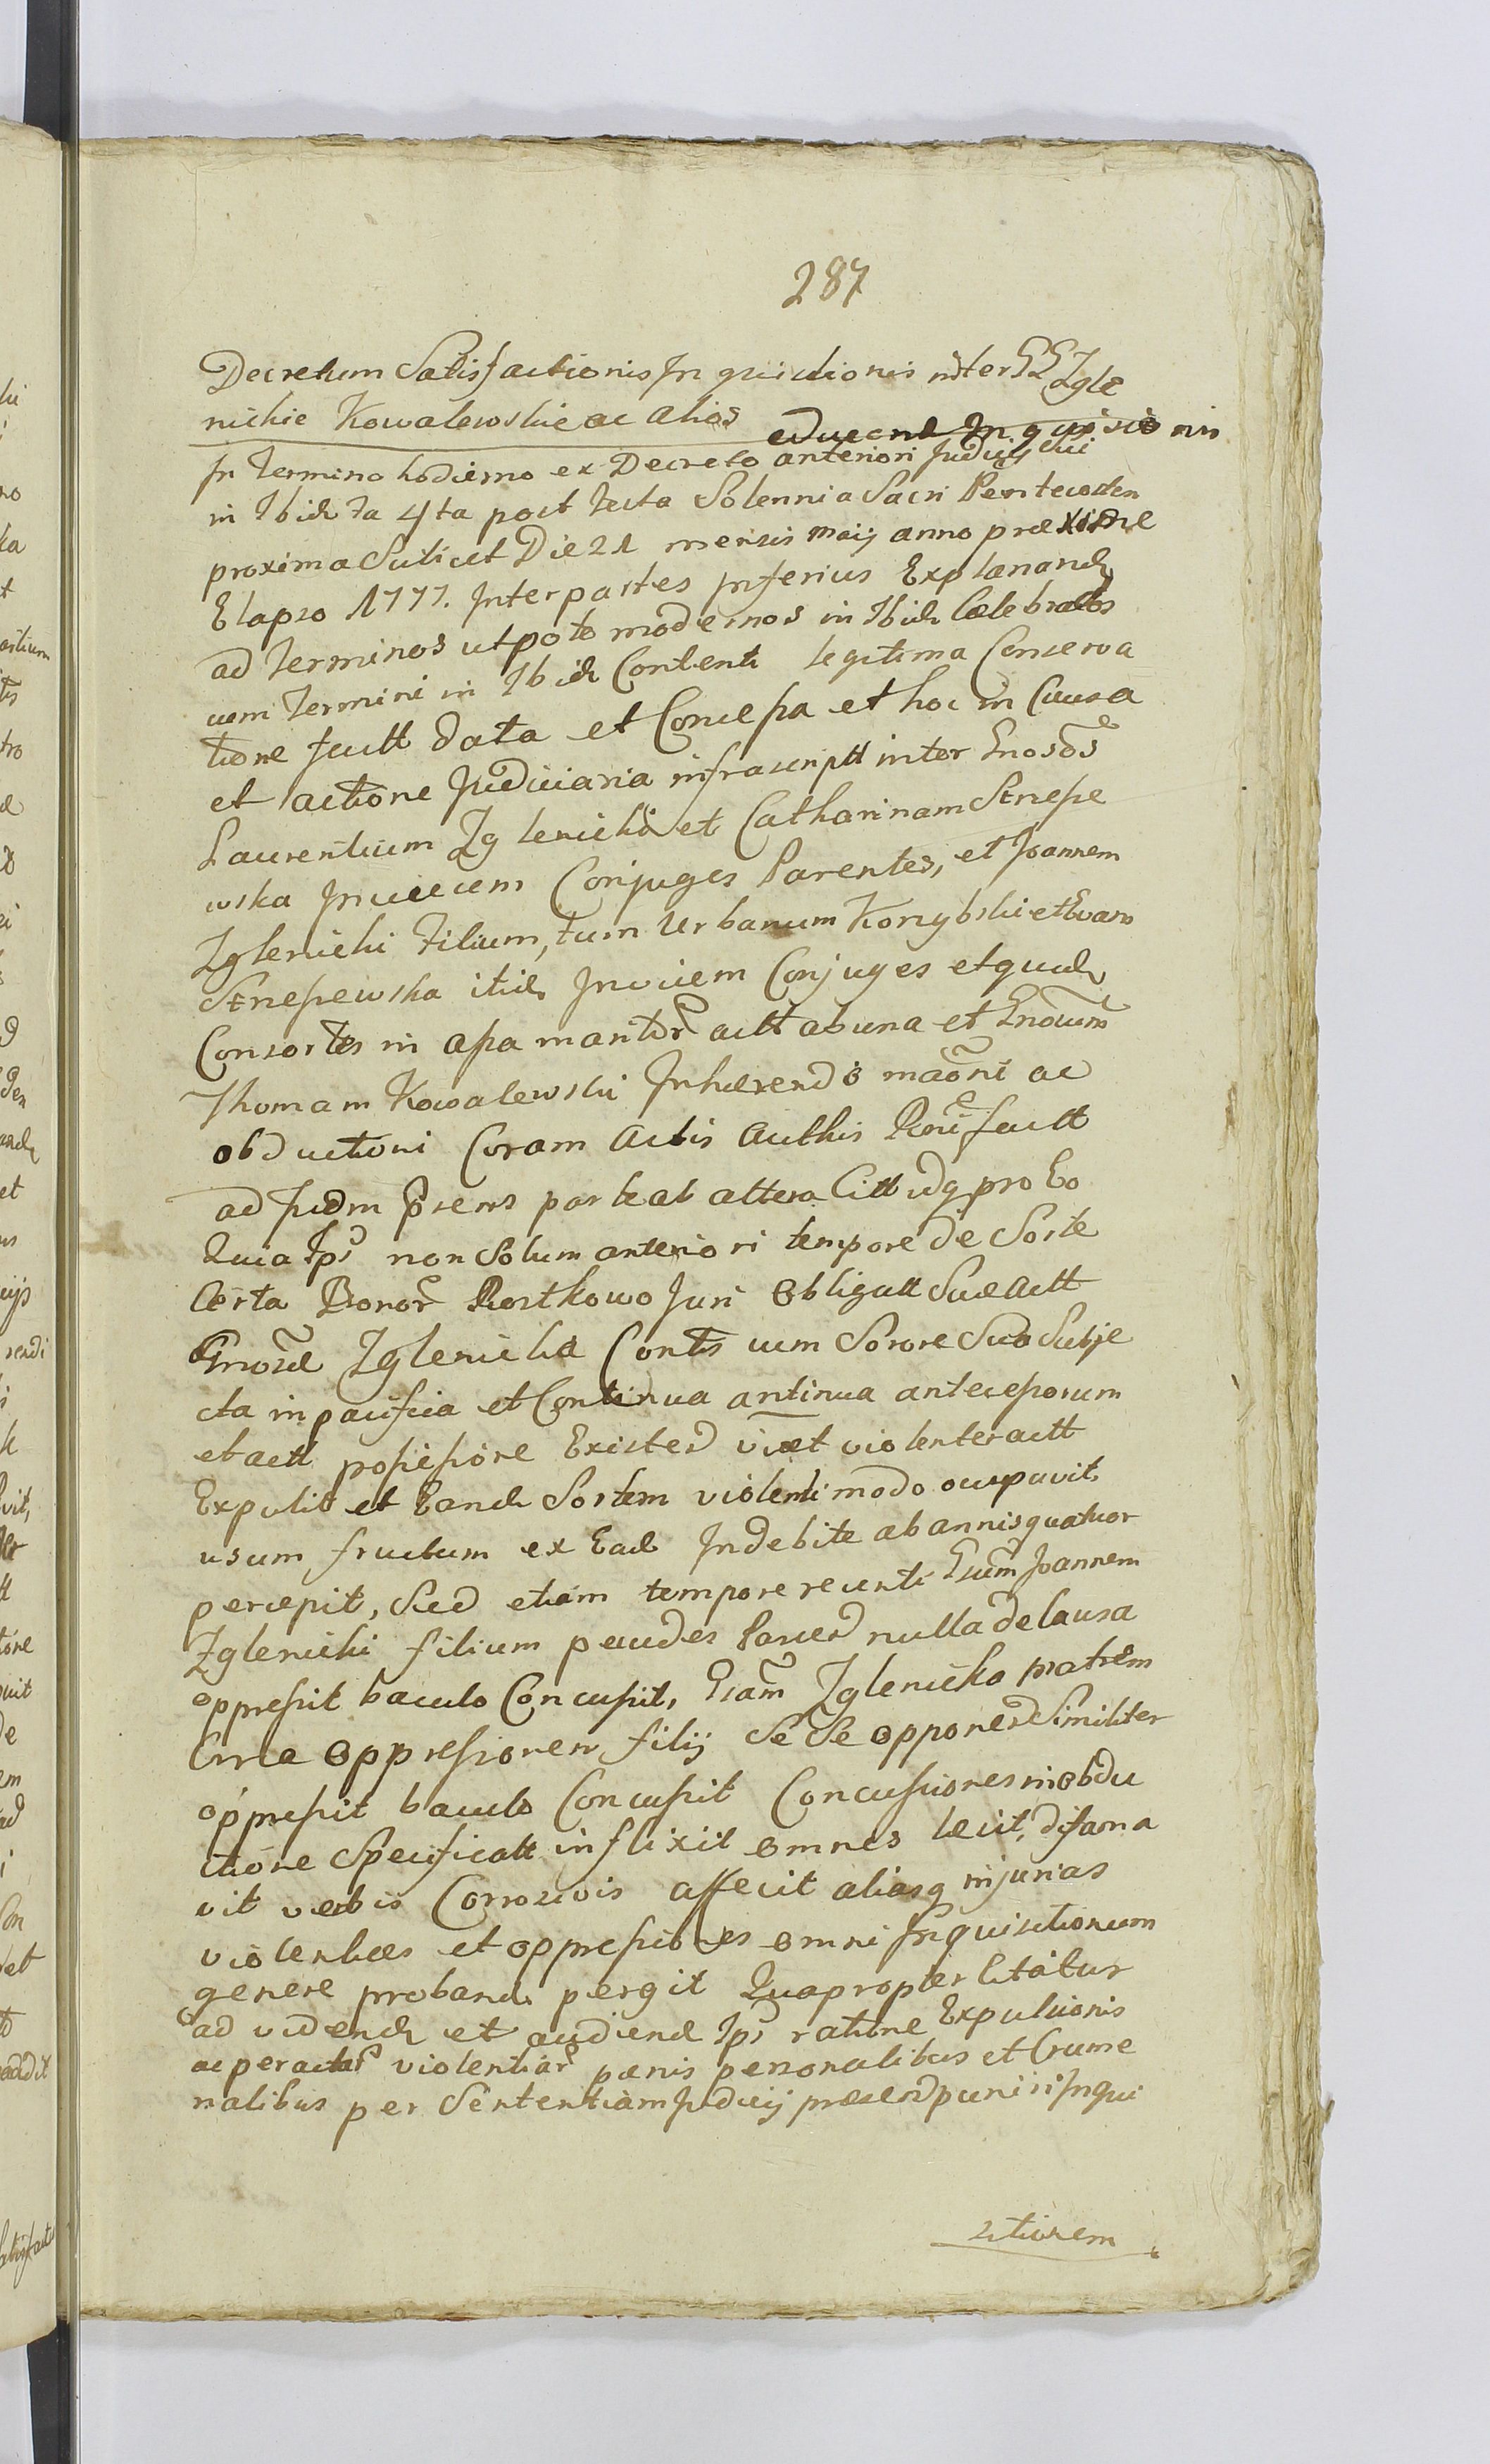 287
Decretum Satisfactionis Inquisitionis inter GG Zgle
nickie Kowalewskie ac alios
educend Inquisicionis
In Termino hodierno ex Decreto anteriori Judicij sui
in Ibid Fa 4ta post Festa Solennia Sacri Pentecosten
proxima Scilicet Die 21 mensis maij anno proxime
Elapso 1777. Inter partes Inferius Explanand
ad Terminos utpote modernos in Ibid Celebratos
cum Termini in Ibid Contenti legitima Conserva
tione factt data et Concessa et hoc in Causa
et actione Judiciaria infrascriptt inter Gnosos
Laurentium Zglenicki et Catharinam Strzesze
wska Invicem Conjuges Parentes, et Joannem
Zglenicki Filium, tum Urbanum Korzybski et Evam
Strzeszewska itid Invicem Conjuges et quod
Consortes in assa maritor actt ab una et Gnosum
Thomam Kowalewski Inhærendo maoni ac
obductioni Coram Actis Authis Roni factt
ad Judm Præns part ab altera Citt idq pro Eo
Quia Ips non solum anteriori tempore de Sorte
Certa Bonor Rostkowo Juri Obligatt Suæ Actt
Gnosæ Zglenicka Conts cum Sorore Sua Subje
cta in pacifica et Continua antiqua antecessorum
et actt possessione Existen viæt violenter actt
Expulit et Eand Sortem violenti modo occupavit
usum fructum ex Ead Indebite ab annis quatuor
percepit, Sed etiam tempore recenti Gsum Joannem
Zglenicki filium pecudes Pascen nulla de Causa
oppressit baculo Concussit, Gsam Zglenicka matrem
Circa Oppressionem filij Se Se opponen Similiter
oppressit baculo Concussit Concussiones in obdu
ctione Specificatt inflixit omnes læcit, difama
vit verbis Corrosivis affecit aliasq injurias
violentias et oppressiones omni Inquisitionum
genere proband pergit Quapropter Citatur
ad vidend et audiend Ips ratione Expulsionis
ac peractar violentiar pænis personalibus et Crume
nalibus per Sententiam Judicij præsen puniri Inqui
sitionem